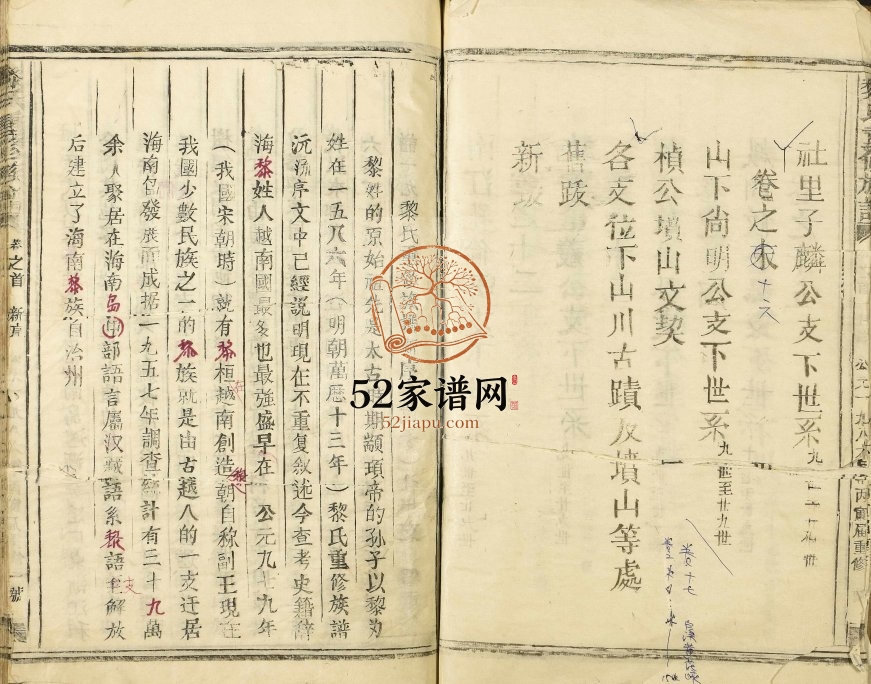 社里子麟公支下世系
卷之末
山下尙明公支下世系 九世至廿九世
楨公墳山文契
各支位下山川古蹟及墳山等處
舊跋
新跋
卷十七
公元一九八六年丙寅屆重修
黎氏
黎姓的原始祖先是太古時期顓頊帝的孫子以黎为
姓在一五八六年（明朝萬历十三年）黎氏重修族譜
沅汤序文中已經說明現在不重复敘述今查考史籍辞
海黎姓人越南國最多也最強盛早在 公元九七九年
（我國宋朝時）就有黎桓越南創造黎朝自称副王現在
我國少數民族之一的黎族就是由古越人的一支迁居
海南岛發展而成据一九五七年調查統計有三十九萬
余人聚居在海南岛中部語言屬汉藏語系黎語支解放
后建立了海南黎族自治州
卷之首 新序
一號
52家谱网
52jiapu.com